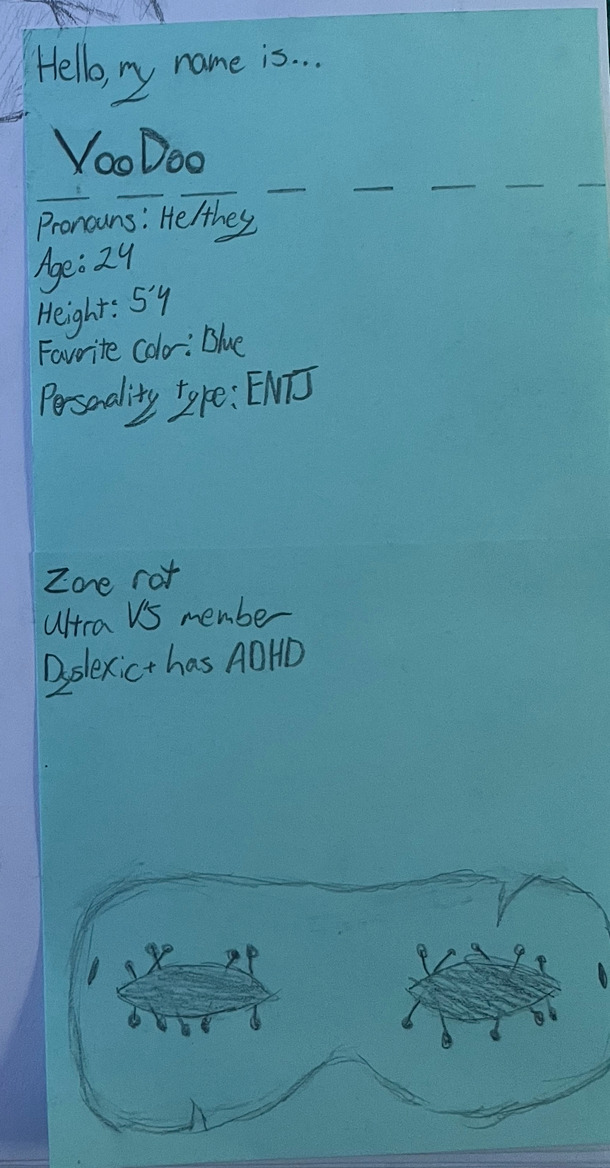 Hello, my name is...
VooDoo
Pronouns: He/they
Age: 24
Height: 5'4
Favorite Color: Blue
Personality type: ENTJ
Zone rat
Ultra V5 member
Dyslexic + has ADHD